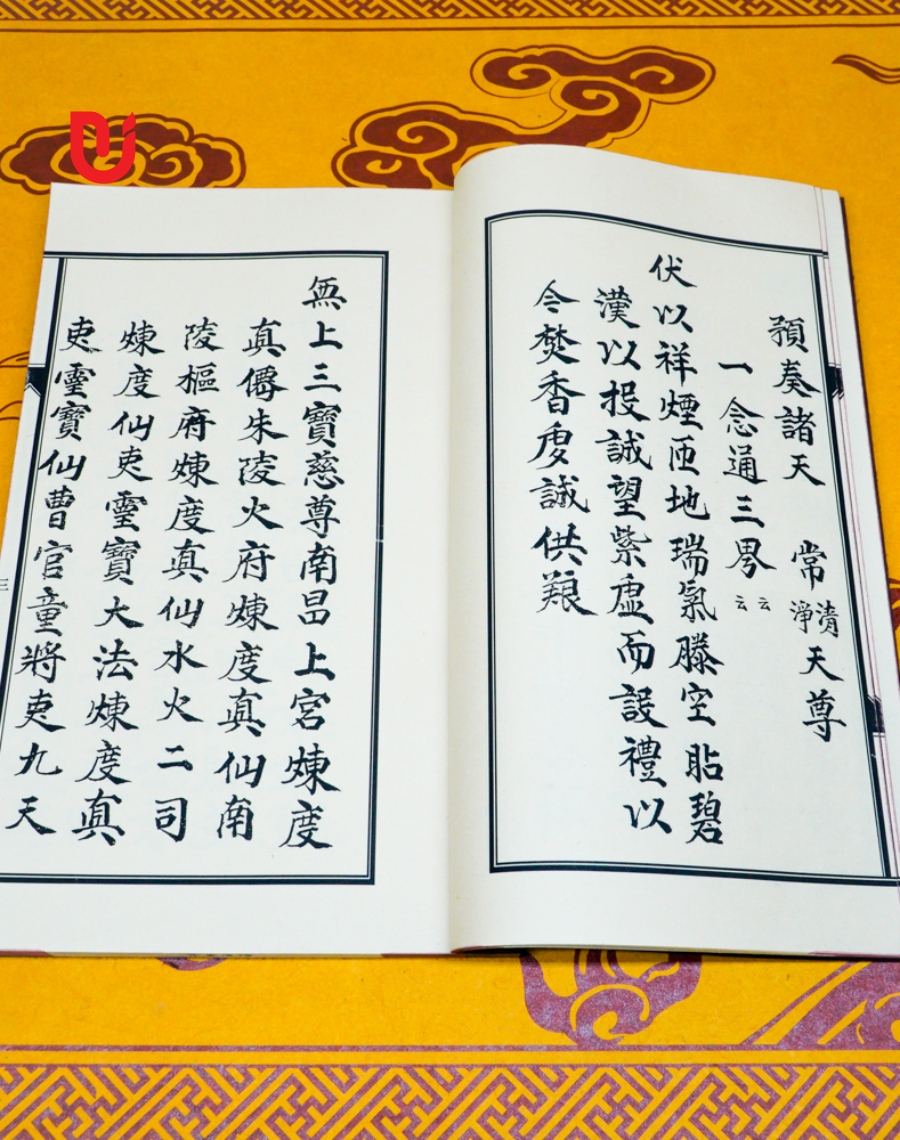 預奏諸天　常清淨天尊
一念通三界云云
伏以祥煙匝地瑞氣滕空貼碧
漢以投誠望紫虛而設禮以
今焚香虔誠供養
無上三寶慈尊南昌上宮煉度
真僊朱陵火府煉度真仙南
陵樞府煉度真仙水火二司
煉度仙吏靈寶大法煉度真
吏靈寶仙曹官童將吏九天
三